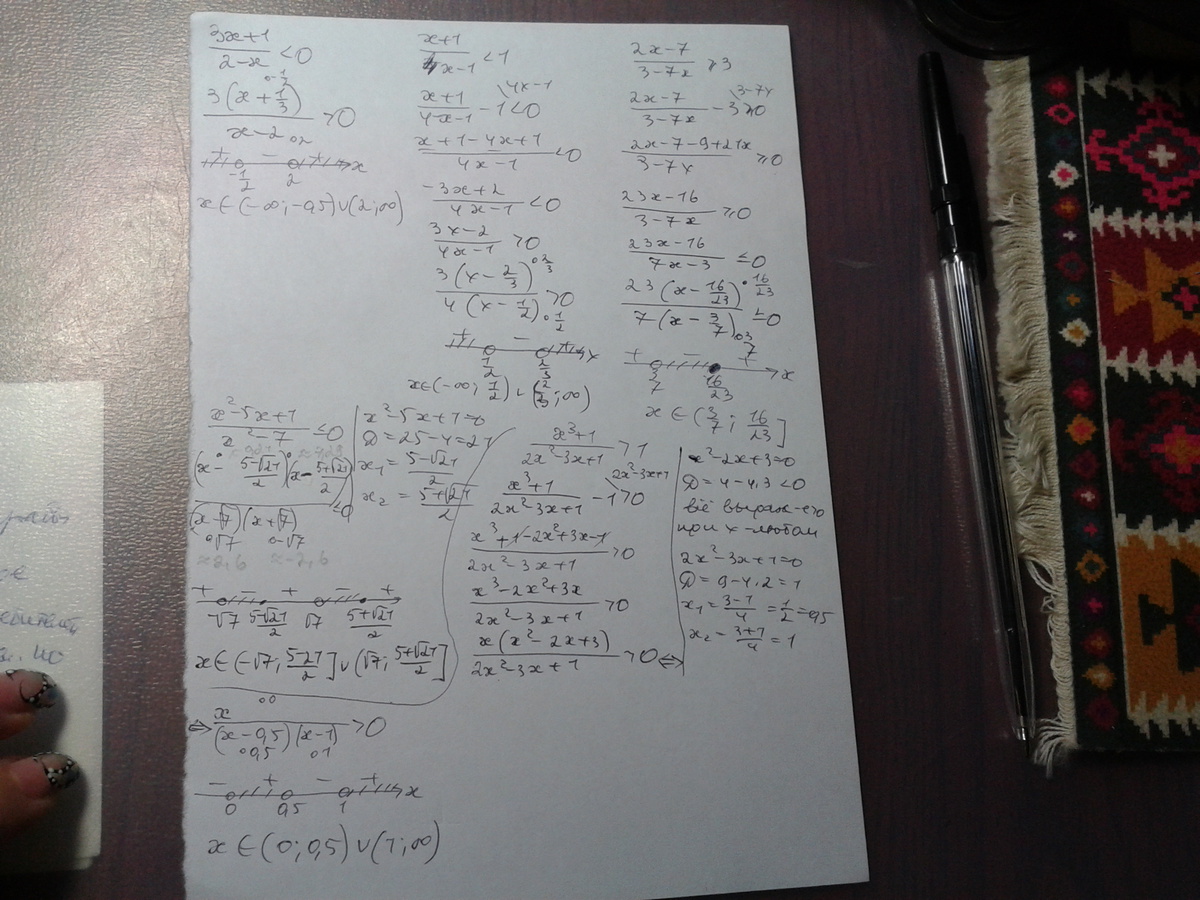 3x+1/2-x <0
3(x+1/3)/x-2 >0
+ - + x
-1/2 2
x∈(-∞;-0,5)∪(2;∞)
x+1/4x-1 <1
x+1/4x-1 -1<0 \4x-1
x+1-4x+1/4x-1 <0
-3x+2/4x-1 <0
3x-2/4x-1 >0
3(x-2/3)/4(x-1/2) >0 ∘2/3 ∘1/2
+ - + x
1/2 2/3
x∈(-∞; 1/2)∪(2/3;∞)
2x-7/3-7x ≥3
2x-7/3-7x -3≥0 \3-7x
2x-7-9+21x/3-7x ≥0
23x-16/3-7x ≥0
23x-16/7x-3 ≤0
23(x-16/23)/7(x-3/7) ≤0 •16/23 ∘3/7
+ - + x
3/7 16/23
x∈(3/7; 16/23]
x²-5x+1/x²-7 ≤0
(x-5-√21/2)(x-5+√21/2)/(x-√7)(x+√7) ≤0
∘√7 ∘-√7
≈2,6 ≈-2,6
+ - + - +
-√7 5-√21/2 √7 5+√21/2
x∈(-√7; 5-21/2]∪(√7; 5+√21/2]
x²-5x+1=0
D=25-4=21
x₁=5-√21/2
x₂=5+√21/2
x³+1/2x²-3x+1 >1
x³+1/2x²-3x+1 -1>0 \2x²-3x+1
x³+1-2x²+3x-1/2x²-3x+1 >0
x³-2x²+3x/2x²-3x+1 >0
x(x²-2x+3)/2x²-3x+1 >0 ⇔
x²-2x+3=0
D=4-4.3<0
всё выраж-е>0
при x-любом
2x²-3x+1=0
D=9-4.2=1
x₁=3-1/4=1/2=0,5
x₂=3+1/4=1
⇔ x/(x-0,5)(x-1) >0
∘0
∘0,5 ∘1
- + - + x
0 0,5 1
x∈(0;0,5)∪(1;∞)